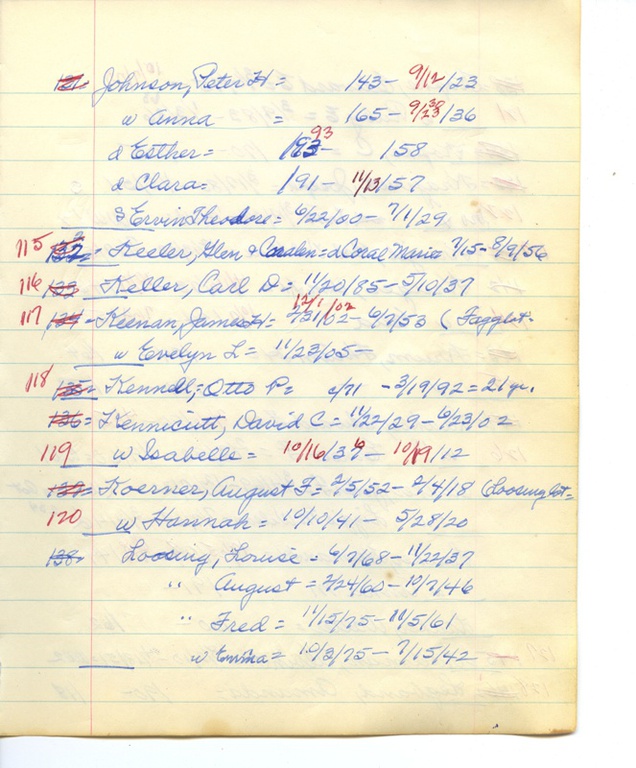 Johnson, Peter H = 143 - 9/12/23
w Anna = 165 - 9/23/36
d Esther = 193 - 158
d Clara = 191 - 11/13/57
S Ervin Theodore = 6/22/00 - 7/1/29
115 Keeler, Glen & Coralen = d Coral Marie 7/15 - 8/9/56
116 133 Keller, Carl D = 11/20/85 - 5/10/37
117 134 = Keenan, James H = 12/1/02 - 6/2/53 (Fagglot -
w Evelyn L = 11/23/05 -
118 135 = Kennell, Otto P = c/71 - 3/19/92 = 21 yr.
136 = Kennicutt, David C = 11/22/29 - 6/23/02
119 w Isabelle = 10/16/39 - 10/19/12
137 = Koerner, August F = 2/5/52 - 2/4/18 (Loosing lot =
120 w Hannah = 10/10/41 - 5/28/20
138 = Loosing, Louise = 6/7/68 - 11/22/37
" August = 2/24/60 - 10/7/46
" Fred = 11/15/75 - 11/5/61
w Emma = 10/3/75 - 7/15/42